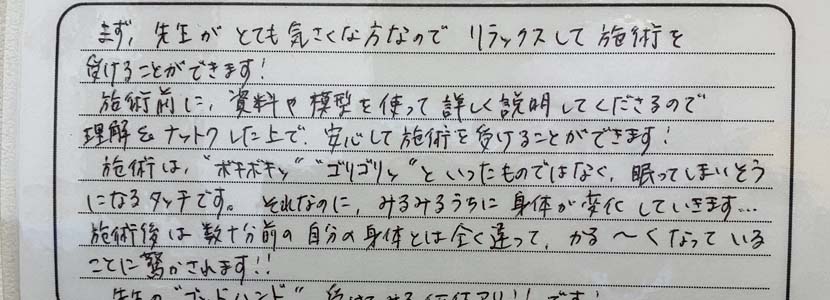 まず、先生がとても気さくな方なのでリラックスして施術を
受けることができます！
施術前に、資料や模型を使って詳しく説明してくださるので
理解&ナットクした上で、安心して施術を受けることができます！
施術は、"ボキボキッ""ゴリゴリッ"といったものではなく、眠ってしまいそう
になるタッチです。それなのに、みるみるうちに身体が変化していきます…
施術後は数十分前の自分の身体とは全く違って、かる〜くなっている
ことに驚かされます！！
先生の"ゴッドハンド"